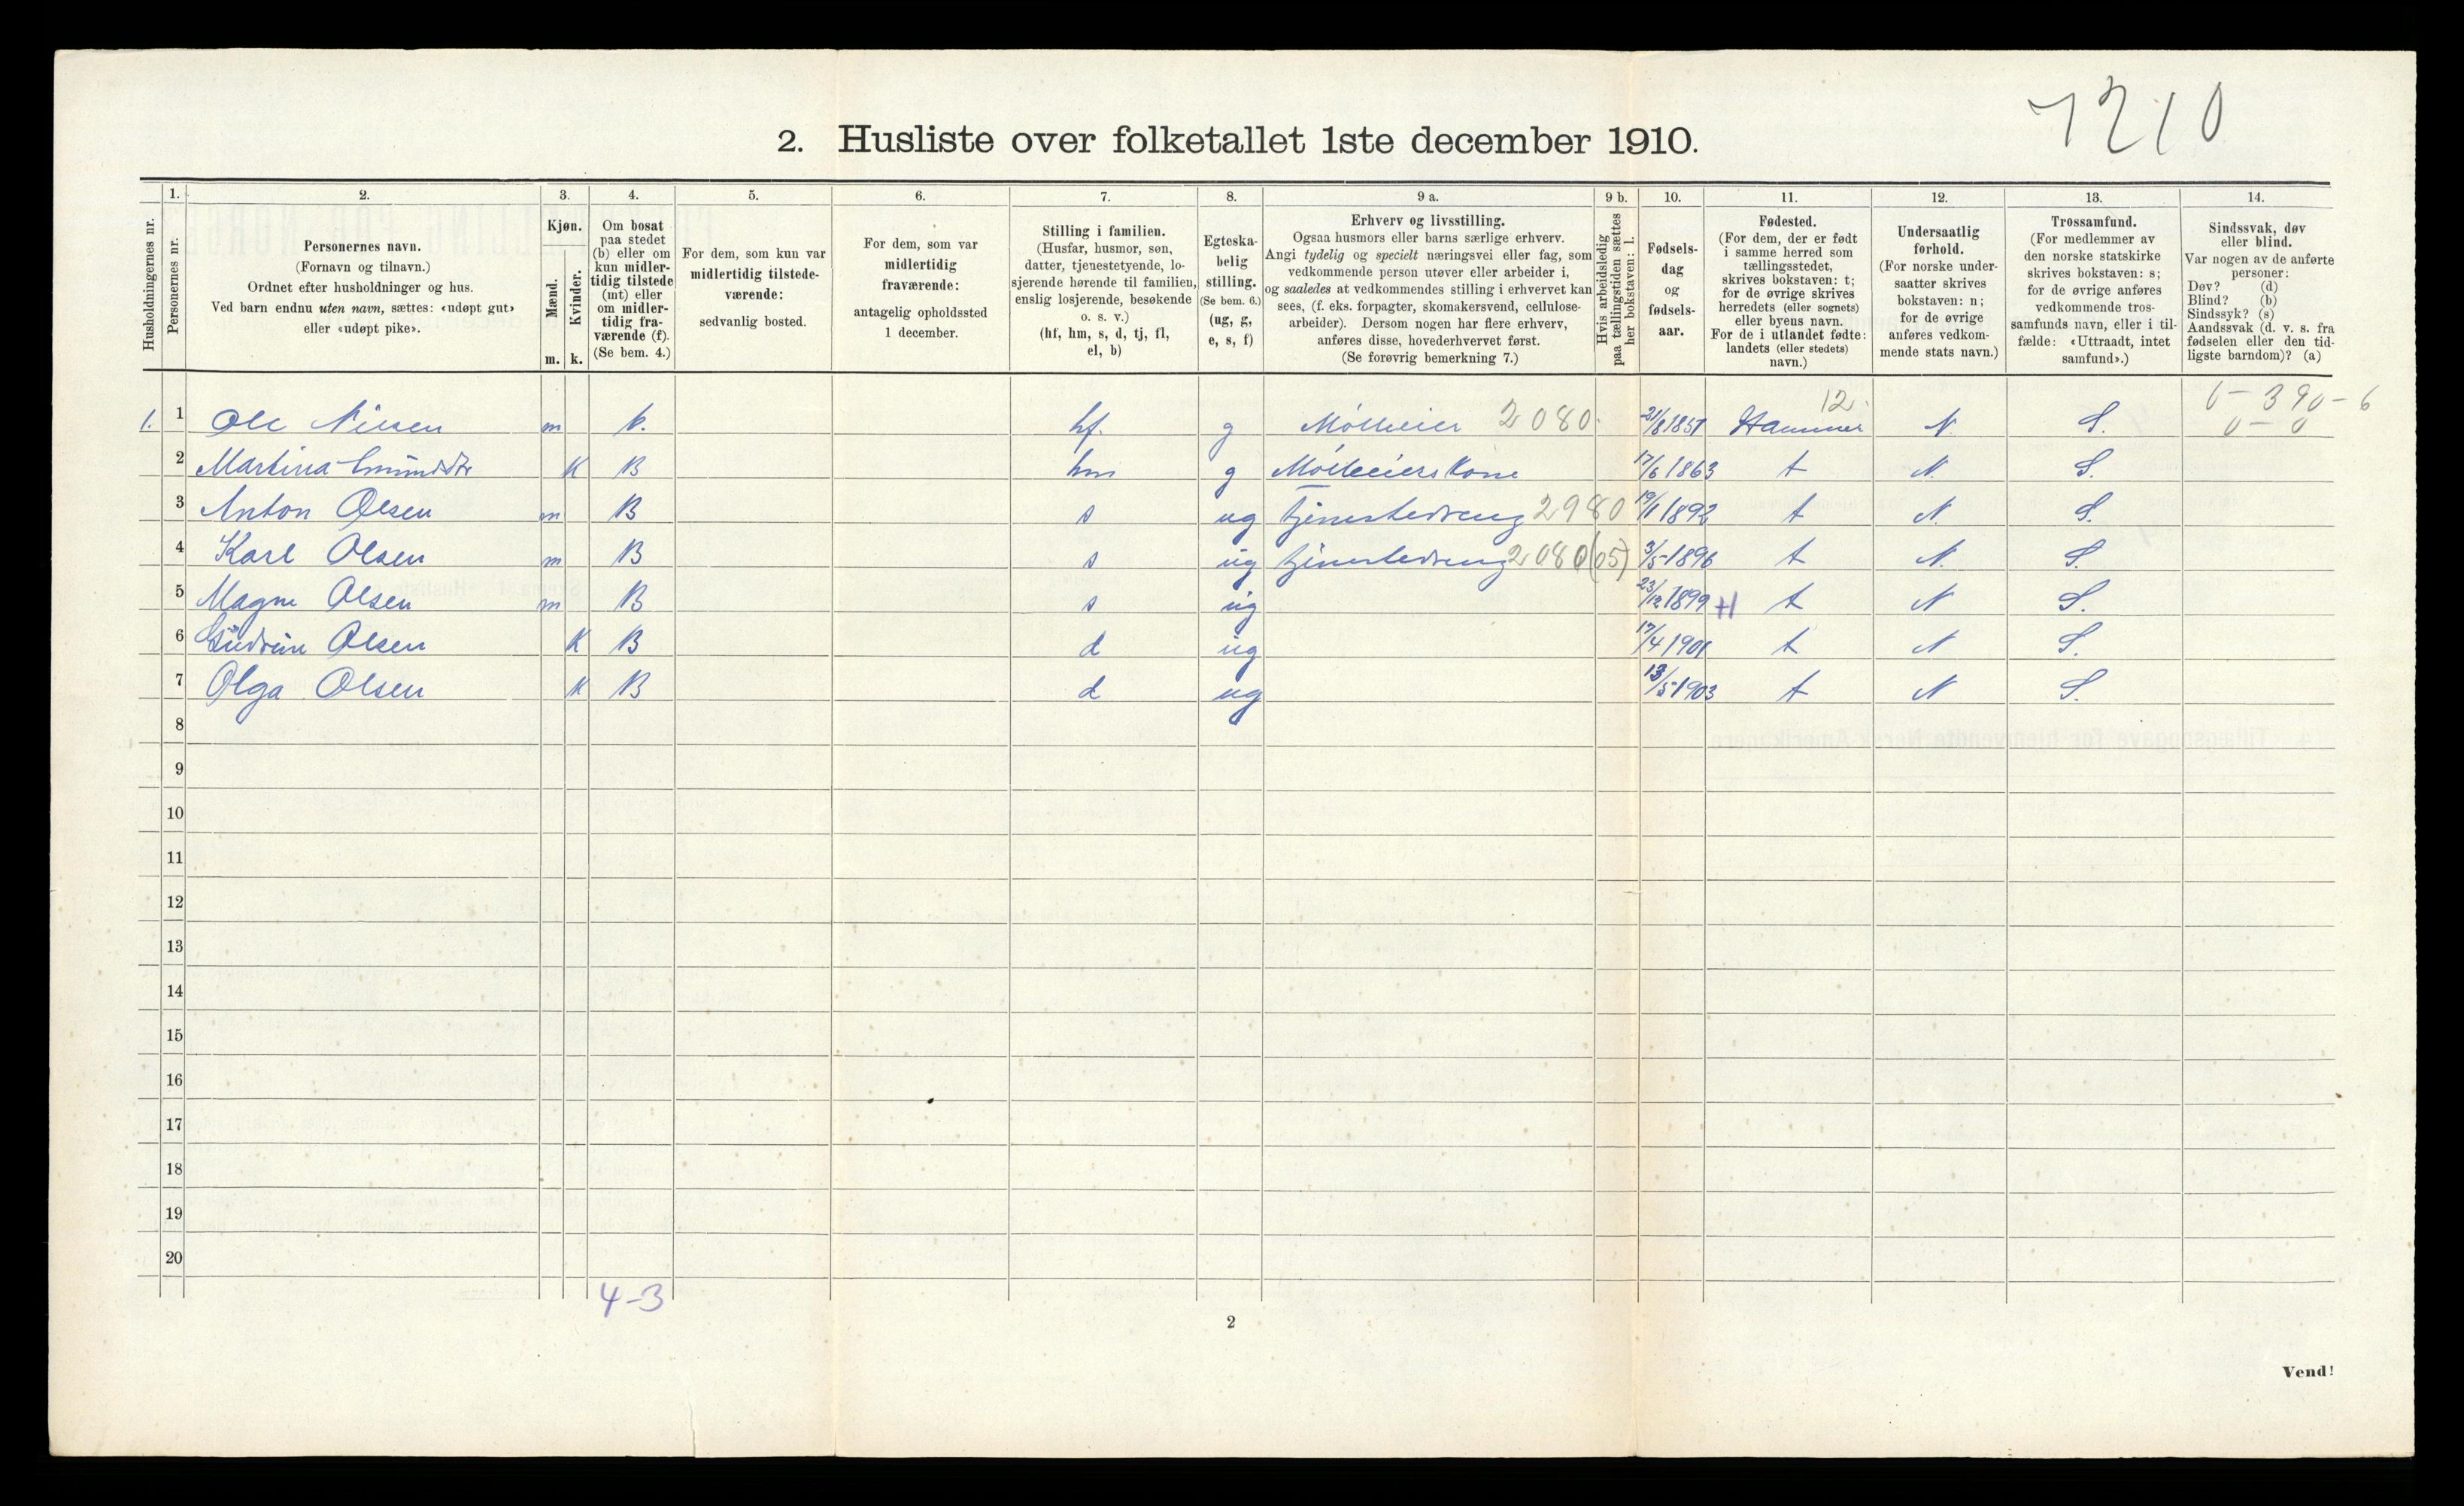 7210
2. Husliste over folketallet 1ste december 1910.
Husholdningernes nr.
1.
Personernes nr.
2.
Personernes navn.
(Fornavn og tilnavn.)
Ordnet efter husholdninger og hus.
Ved barn endnu uten navn, sættes: «udøpt gut»
eller «udøpt pike».
3.
Kjøn.
Mænd.
Kvinder.
m. k.
4.
Om bosat
paa stedet
(b) eller om
kun midler-
tidig tilstede
(mt) eller
om midler-
tidig fra-
værende (f).
(Se bem. 4.)
5.
For dem, som kun var
midlertidig tilstede-
værende:
sedvanlig bosted.
6.
For dem, som var
midlertidig
fraværende:
antagelig opholdssted
1 december.
7.
Stilling i familien.
(Husfar, husmor, søn,
datter, tjenestetyende, lo-
sjerende hørende til familien,
enslig losjerende, besøkende
o. s. v.)
(hf, hm, s, d, tj, fl,
el, b)
8.
Egteska-
belig
stilling.
(Se bem. 6.)
(ug, g,
e, s, f)
9 a.
Erhverv og livsstilling.
Ogsaa husmors eller barns særlige erhverv.
Angi tydelig og specielt næringsvei eller fag, som
vedkommende person utøver eller arbeider i,
og saaledes at vedkommendes stilling i erhvervet kan
sees, (f. eks. forpagter, skomakersvend, cellulose-
arbeider). Dersom nogen har flere erhverv,
anføres disse, hovederhvervet først.
(Se forøvrig bemerkning 7.)
9 b.
Hvis arbeidsledig
paa tællingstiden sættes
her bokstaven: l.
10.
Fødsels-
dag
og
fødsels-
aar.
11.
Fødested.
(For dem, der er født
i samme herred som
tællingsstedet,
skrives bokstaven: t;
for de øvrige skrives
herredets (eller sognets)
eller byens navn.
For de i utlandet fødte:
landets (eller stedets)
navn.)
12.
Undersaatlig
forhold.
(For norske under-
saatter skrives
bokstaven: n;
for de øvrige
anføres vedkom-
mende stats navn.)
13.
Trossamfund.
(For medlemmer av
den norske statskirke
skrives bokstaven: s;
for de øvrige anføres
vedkommende tros-
samfunds navn, eller i til-
fælde: «Uttraadt, intet
samfund».)
14.
Sindssvak, døv
eller blind.
Var nogen av de anførte
personer:
Døv? (d)
Blind? (b)
Sindssyk? (s)
Aandssvak (d. v. s. fra
fødselen eller den tid-
ligste barndom)? (a)
12. 0 - 390 - 6
1. 1 Ole Nilsen m b. hf. g Mölleeier 2080 21/8 1857 Hammer N. S. 0 - 0
2 Martina K B hm g Mölleeierskone 17/6 1863 t N. S.
3 Anton Olsen m B s ug tjenestedreng 2980 19/1 1892 t N. S.
4 Karl Olsen m B s ug tjenestedreng 2080 (05) 3/5 1896 t N. S.
5 Magne Olsen m B s ug 23/12 1899 +1 t N S.
6 Gudrun Olsen K B d ug 17/4 1901 t N S.
7 Olga Olsen K B d ug 13/5 1903 t N S.
8
9
10
11
12
13
14
15
16
17
18
19
20
4-3
2
Vend!